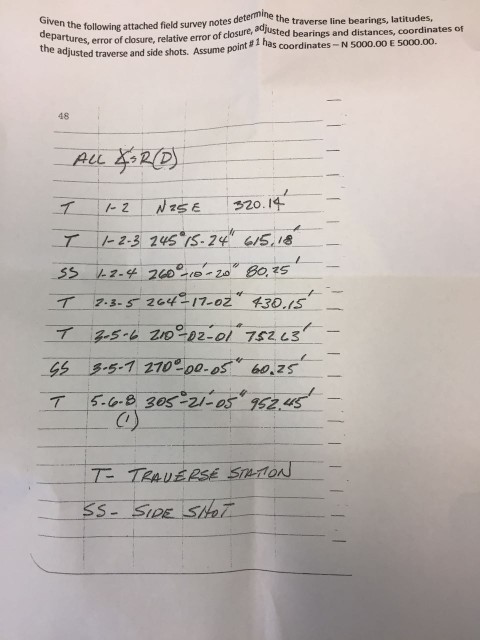 Given the following attached field survey notes determine the traverse line bearings, latitudes,
departures, error of closure, relative error of closure, adjusted bearings and distances, coordinates of
the adjusted traverse and side shots. Assume point #1 has coordinates – N 5000.00 E 5000.00.
48
ALL ∡'s R(D)
T 1-2 N25E 320.14'
T 1-2-3 245°15-24" 615.18'
SS 1-2-4 260°-10'-20" 80.25'
T 2-3-5 264°-17-02" 430.15'
T 3-5-6 210°-02'-01" 752.63'
SS 3-5-7 270°-00-05" 60.25'
T 5-6-8 305°-21'-05" 952.45'
(1)
T- TRAVERSE STATION
SS- SIDE SHOT